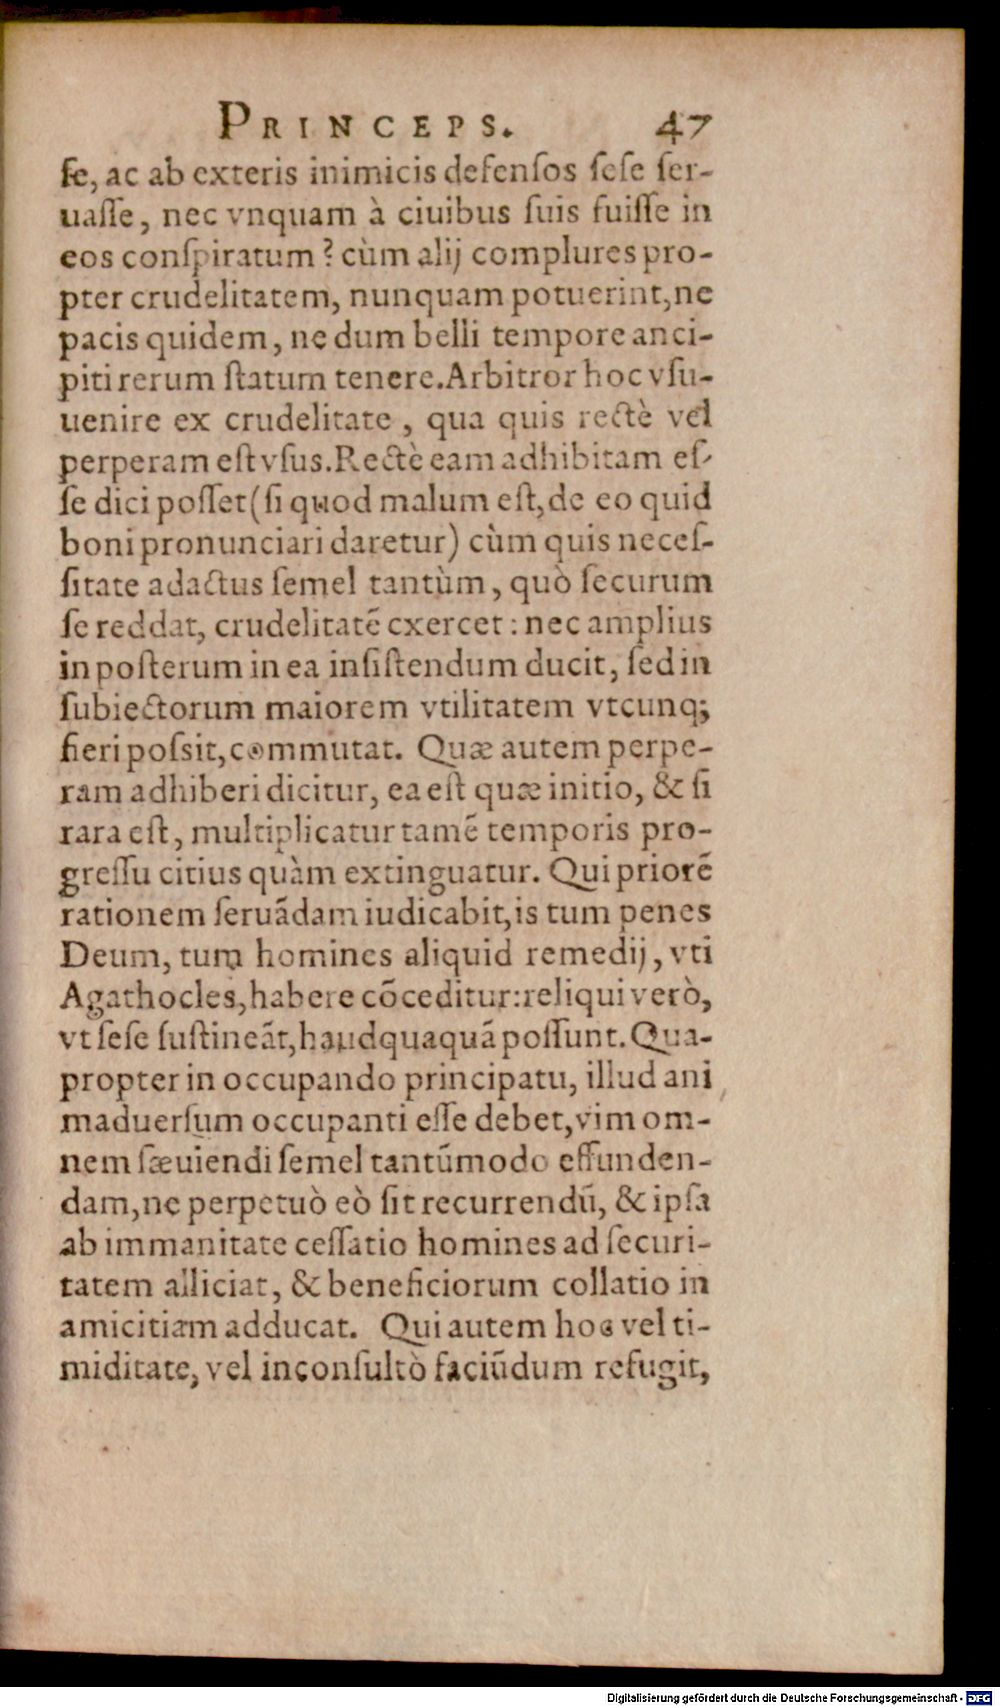 PRINCEPS. 47
ſe, ac ab exteris inimicis defenſos ſeſe ſer-
uaſſe, nec vnquam à ciuibus ſuis fuiſſe in
eos conſpiratum? cùm alij complures pro-
pter crudelitatem, nunquam potuerint, ne
pacis quidem, ne dum belli tempore anci-
piti rerum ſtatum tenere. Arbitror hoc vſu-
uenire ex crudelitate, qua quis rectè vel
perperam eſt vſus. Rectè eam adhibitam eſ-
ſe dici poſſet (ſi quod malum eſt, de eo quid
boni pronunciari daretur) cùm quis neceſ-
ſitate adactus ſemel tantùm, quò ſecurum
ſe reddat, crudelitatē exercet: nec amplius
in poſterum in ea inſiſtendum ducit, ſed in
ſubiectorum maiorem vtilitatem vtcunq;
fieri poſsit, commutat. Quæ autem perpe-
ram adhiberi dicitur, ea eſt quæ initio, & ſi
rara eſt, multiplicatur tamē temporis pro-
greſſu citius quàm extinguatur. Qui priorē
rationem ſeruādam iudicabit, is tum penes
Deum, tum homines aliquid remedij, vti
Agathocles, habere cōceditur: reliqui verò,
vt ſeſe ſuſtineāt, haudquaquā poſſunt. Qua-
propter in occupando principatu, illud ani
maduerſum occupanti eſſe debet, vim om-
nem ſæuiendi ſemel tantūmodo effunden-
dam, ne perpetuò eò ſit recurrendū, & ipſa
ab immanitate ceſſatio homines ad ſecuri-
tatem alliciat, & beneficiorum collatio in
amicitiam adducat. Qui autem hoc vel ti-
miditate, vel inconſultò faciūdum refugit,
Digitalisierung gefördert durch die Deutsche Forschungsgemeinschaft - DFG